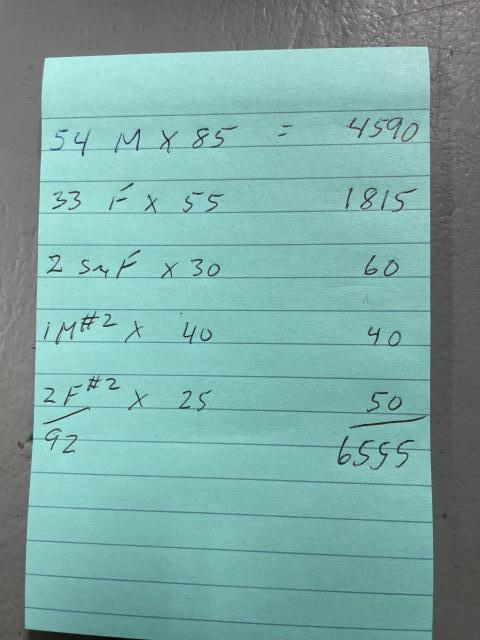 54 M X 85 = 4590
33 F X 55 1815
2 Sm F X 30 60
1 M #2 X 40 40
2 F #2 X 25 50
92 6555